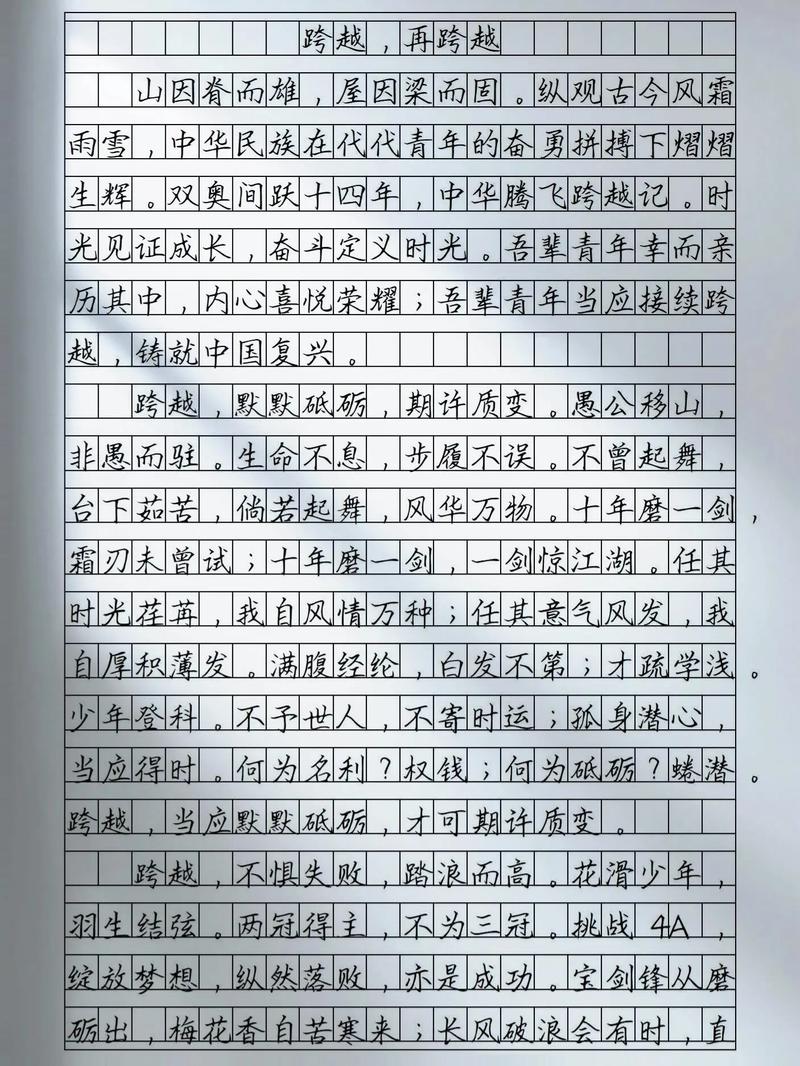 跨越，再跨越
山因脊而雄，屋因梁而固。纵观古今风霜
雨雪，中华民族在代代青年的奋勇拼搏下熠熠
生辉。双奥间跃十四年，中华腾飞跨越记。时
光见证成长，奋斗定义时光。吾辈青年幸而亲
历其中，内心喜悦荣耀；吾辈青年当应接续跨
越，铸就中国复兴。
跨越，默默砥砺，期许质变。愚公移山，
非愚而驻。生命不息，步履不误。不曾起舞，
台下茹苦，倘若起舞，风华万物。十年磨一剑，
霜刃未曾试；十年磨一剑，一剑惊江湖。任其
时光荏苒，我自风情万种；任其意气风发，我
自厚积薄发。满腹经纶，白发不第；才疏学浅。
少年登科。不予世人，不寄时运；孤身潜心，
当应得时。何为名利？权钱；何为砥砺？蜷潜。
跨越，当应默默砥砺，才可期许质变。
跨越，不惧失败，踏浪而高。花滑少年，
羽生结弦。两冠得主，不为三冠。挑战4A，
绽放梦想，纵然落败，亦是成功。宝剑锋从磨
砺出，梅花香自苦寒来；长风破浪会有时，直